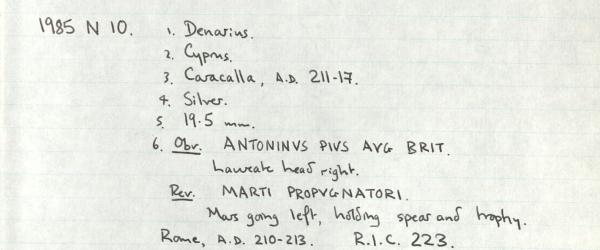 1985 N 10. 1. Denarius.
2. Cyprus.
3. Caracalla, A.D. 211-17.
4. Silver.
5. 19.5 mm.
6. Obv. ANTONINVS PIVS AVG BRIT.
Laureate head right.
Rev. MARTI PROPVGNATORI.
Mars going left, holding spear and trophy.
Rome, A.D. 210-213. R.I.C. 223.